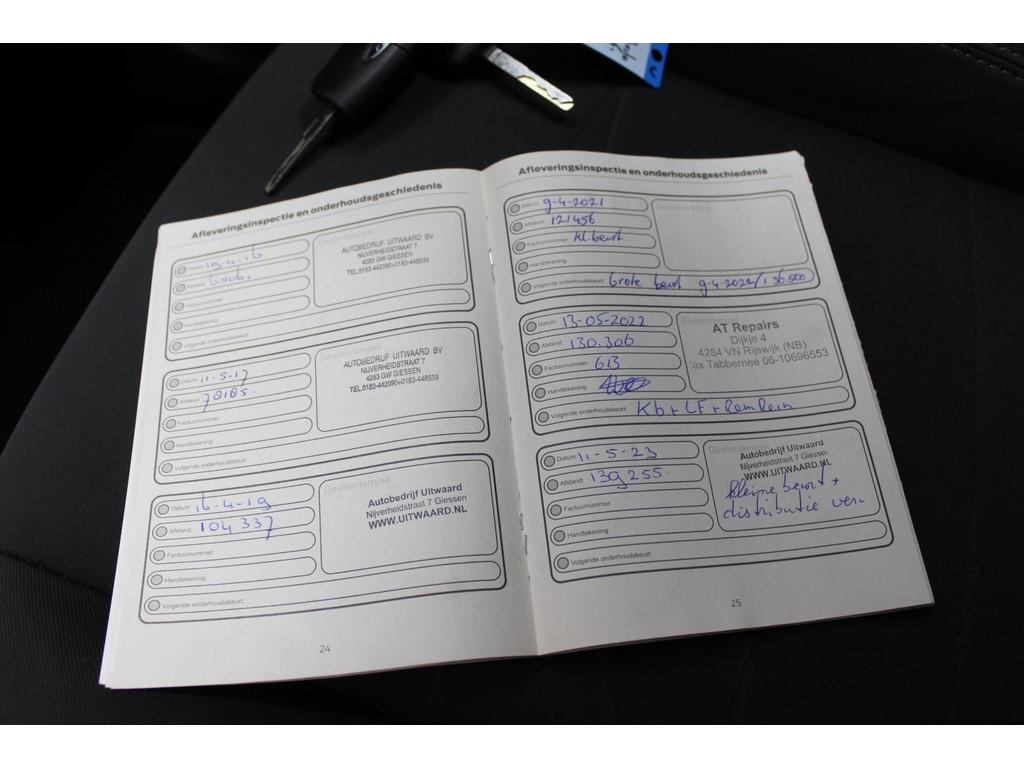 Afleveringsinspectie en onderhoudsgeschiedenis
Datum:
Afstand:
Factuurnummer:
Handtekening:
Volgende onderhoudsbeurt:
Dealerstempel
AUTOBEDRIJF UITWAARD BV
NIJVERHEIDSTRAAT 7
4283 GW GIESSEN
TEL.0183-442090+0183-448539
Datum: 11-5-17
Afstand: 78185.
Factuurnummer:
Handtekening:
Volgende onderhoudsbeurt:
Dealerstempel
AUTOBEDRIJF UITWAARD BV
NIJVERHEIDSTRAAT 7
4283 GW GIESSEN
TEL.0183-442090+0183-448539
Datum: 16-4-19
Afstand: 104337
Factuurnummer:
Handtekening:
Volgende onderhoudsbeurt:
Dealerstempel
Autobedrijf Uitwaard
Nijverheidstraat 7 Giessen
WWW.UITWAARD.NL
24
Afleveringsinspectie en onderhoudsgeschiedenis
Datum: 9-4-2021
Afstand: 121456
Factuurnummer: kl beurt
Handtekening:
Volgende onderhoudsbeurt: Grote beurt 9-4-2022/136500
Dealerstempel
Datum: 13-05-2022
Afstand: 130.306
Factuurnummer: 613
Handtekening:
Volgende onderhoudsbeurt: Kb+LF+RemRein
Dealerstempel
AT Repairs
Dijkje 4
4284 VN Rijswijk (NB)
ex Tabbernee 06-10696553
Datum: 11-5-23
Afstand: 139255.
Factuurnummer:
Handtekening:
Volgende onderhoudsbeurt:
Dealerstempel
Autobedrijf Uitwaard
Nijverheidstraat 7 Giessen
WWW.UITWAARD.NL
kleine beurt +
distributie verv
25